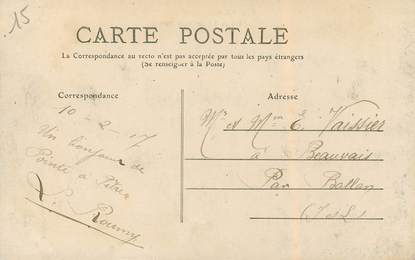 15
CARTE POSTALE
La Correspondance au recto n'est pas acceptée par tous les pays étrangers
(Se renseigner à la Poste)
Correspondance
Adresse
10-2-07
Un bonjour de
Pointe à Pitre
Mr et Mme E. Vaissier
à Beauvais
Par Ballan
(I et L)